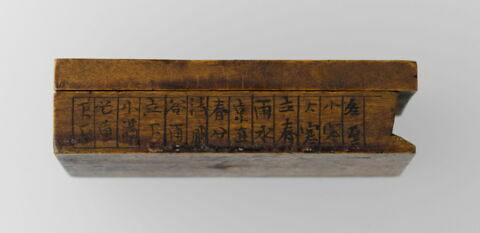 冬至
小寒
大寒
立春
雨水
京直
春分
清明
谷雨
立下
小滿
下至